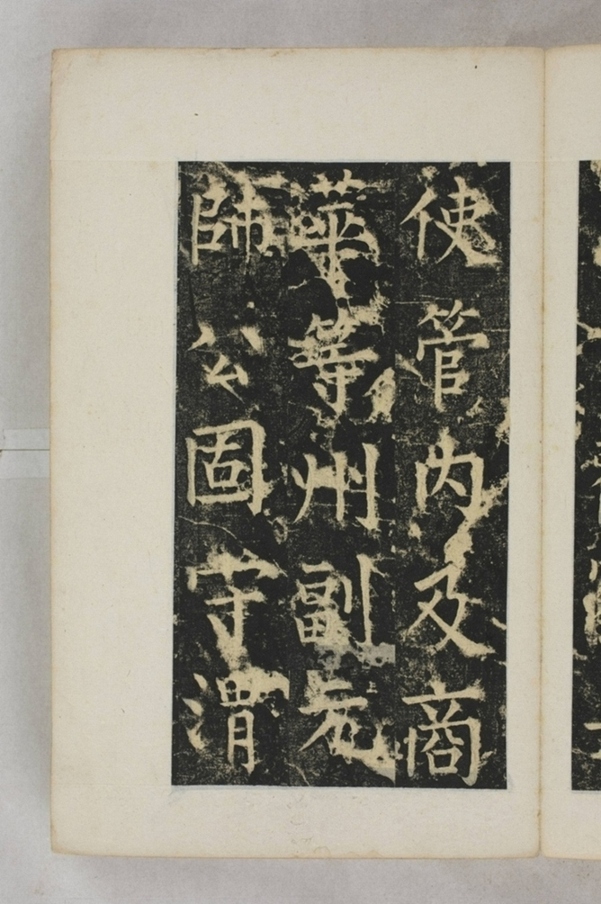 使管内及商
華等州副元
上
師公固守渭